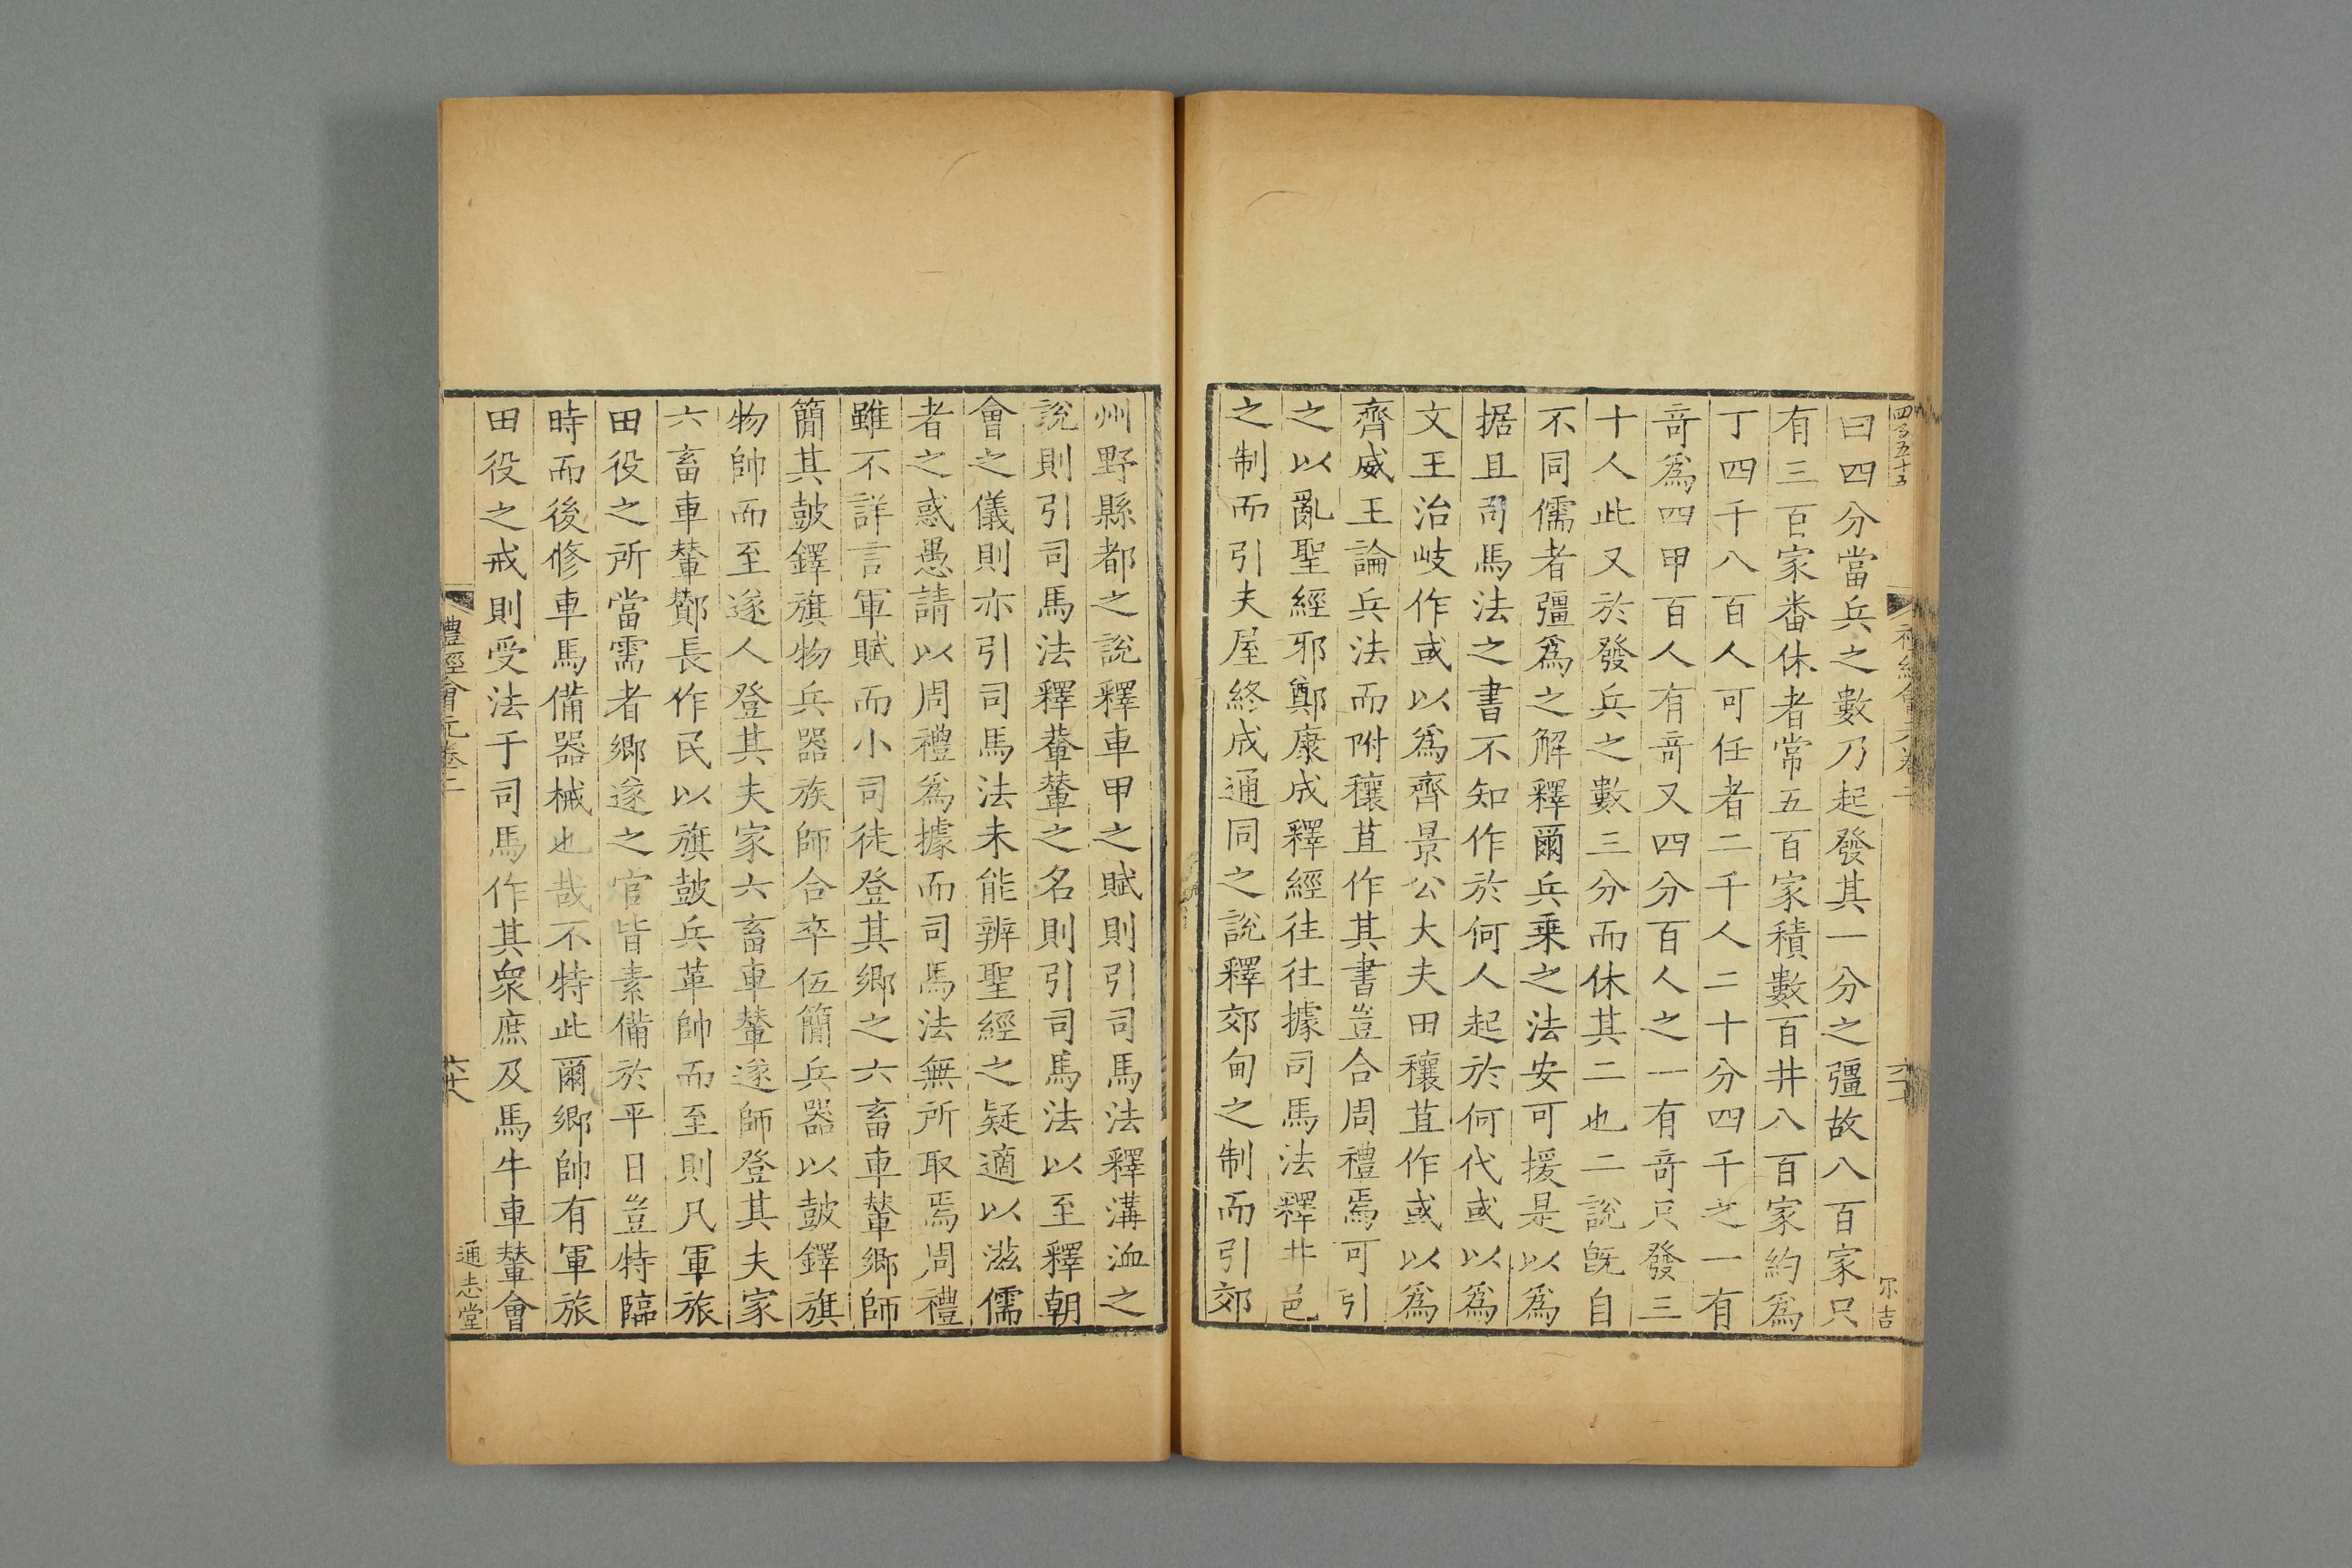 四百五十五
曰四分當兵之數乃起發其一分之彊故八百家只
有三百家畨休者常五百家積數百井八百家約爲
丁四千八百人可任者二千人二十分四千之一有
竒爲四甲百人有竒又四分百人之一有竒只發三
十人此又於發兵之數三分而休其二也二說旣自
不同儒者彊爲之解釋爾兵乗之法安可援是以爲
据且司馬法之書不知作於何人起於何代或以爲
文王治岐作或以爲齊景公大夫田穰苴作或以爲
齊威王論兵法而附穰苴作其書豈合周禮焉可引
之以亂聖經邪鄭康成釋經往往據司馬法釋井邑
之制而引夫屋終成通同之說釋郊甸之制而引郊
州野縣都之說釋車甲之賦則引司馬法釋溝洫之
說則引司馬法釋輂輦之名則引司馬法以至釋朝
會之儀則亦引司馬法未能辨聖經之疑適以滋儒
者之惑愚請以周禮爲據而司馬法無所取焉周禮
雖不詳言軍賦而小司徒登其鄉之六畜車輦鄉師
簡其鼓鐸旗物兵器族師合卒伍簡兵器以鼓鐸旗
物帥而至遂人登其夫家六畜車輦遂師登其夫家
六畜車輦酇長作民以旗鼓兵革帥而至則凡軍旅
田役之所當需者鄉遂之官皆素備於平日豈特臨
時而後修車馬備器械也哉不特此爾鄉帥有軍旅
田役之戒則受法于司馬作其衆庶及馬牛車輦會
禮經會元卷二
六十八
通志堂